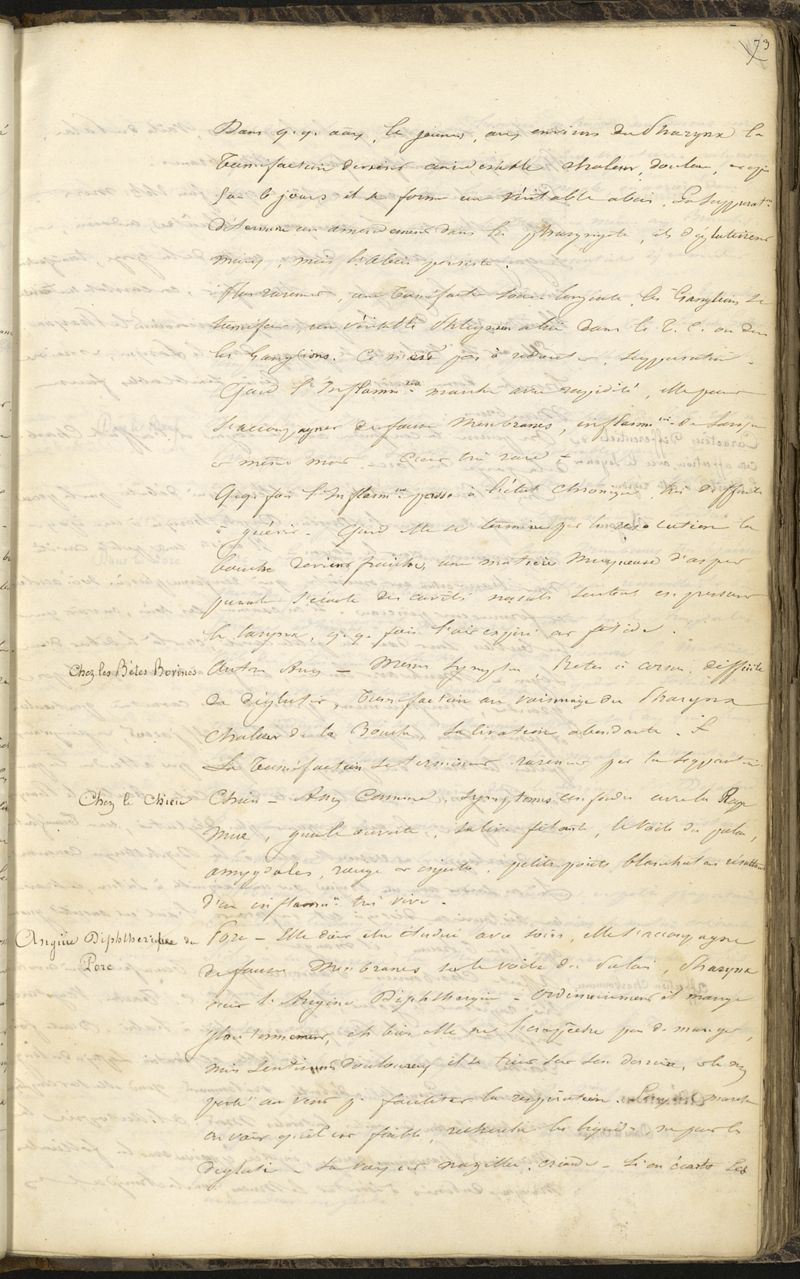 73
Dans q.q. cas, le jeune, aux environs du Pharynx la
Tumefaction devient considérable chaleur, douleur,
6 jours et se forme un véritable abcès. La Suppurat.on
détermine un amendement dans la pharyngite, ils déglutissent
mieux, mais l'abcès persiste.
Plus rarement, une Tuméfaction Sous linguale, les Ganglions se
tuméfient, un véritable Phlegmon abcès dans le T. C. ou dans
les Ganglions. Ce n'est pas à redouter, Suppuration.
Quand l'Inflamm.on marche avec rapidité, elle peut
s'accompagner de fausses Membranes, inflamm.on du Larynx
et même mort. C'est très rare -
Qq. fois l'Inflamm.on passe à l'état Chronique, très difficile
à guérir. Quand elle se termine par la résolution la
bouche devient fraîche, une matière Muqueuse
s'écoule des cavités nasales surtout en pressant
le larynx, q.q. fois l'air expiré est fétide.
Chez les Bêtes Bovines
Autre Ang - Même Symptm, difficile
de déglutir, Tuméfaction au voisinage du Pharynx
Chaleur de la Bouche, Salivation abondante.
La Tuméfaction se termine rarement par la Suppuration
Chez le Chien
Chien - Ang Commune, Symptômes confondus avec la Rage
Mue, gueule ouverte, salive filante, le Voile du palais,
amygdales, rouge et injectés, petits points blanchâtres résultant
d'une inflamm.on très vive.
Angine Diphthérique du
Porc
Porc - Elle doit être étudiée avec soin, elle s'accompagne
de fausses Membranes sur le Voile du Palais, Pharynx
l'Angine Diphthérique - Ordinairement il mange
plus lentement, eh bien elle ne l'empêche pas de manger,
mais sentiment douloureux et se tient sur son derrière, le nez
porté au vent p. faciliter la respiration. marche
on voit qu'il est faible, recherche les liquides, ne peut les
déglutir - Sa voix est nazillée, criarde - Si on écarte les